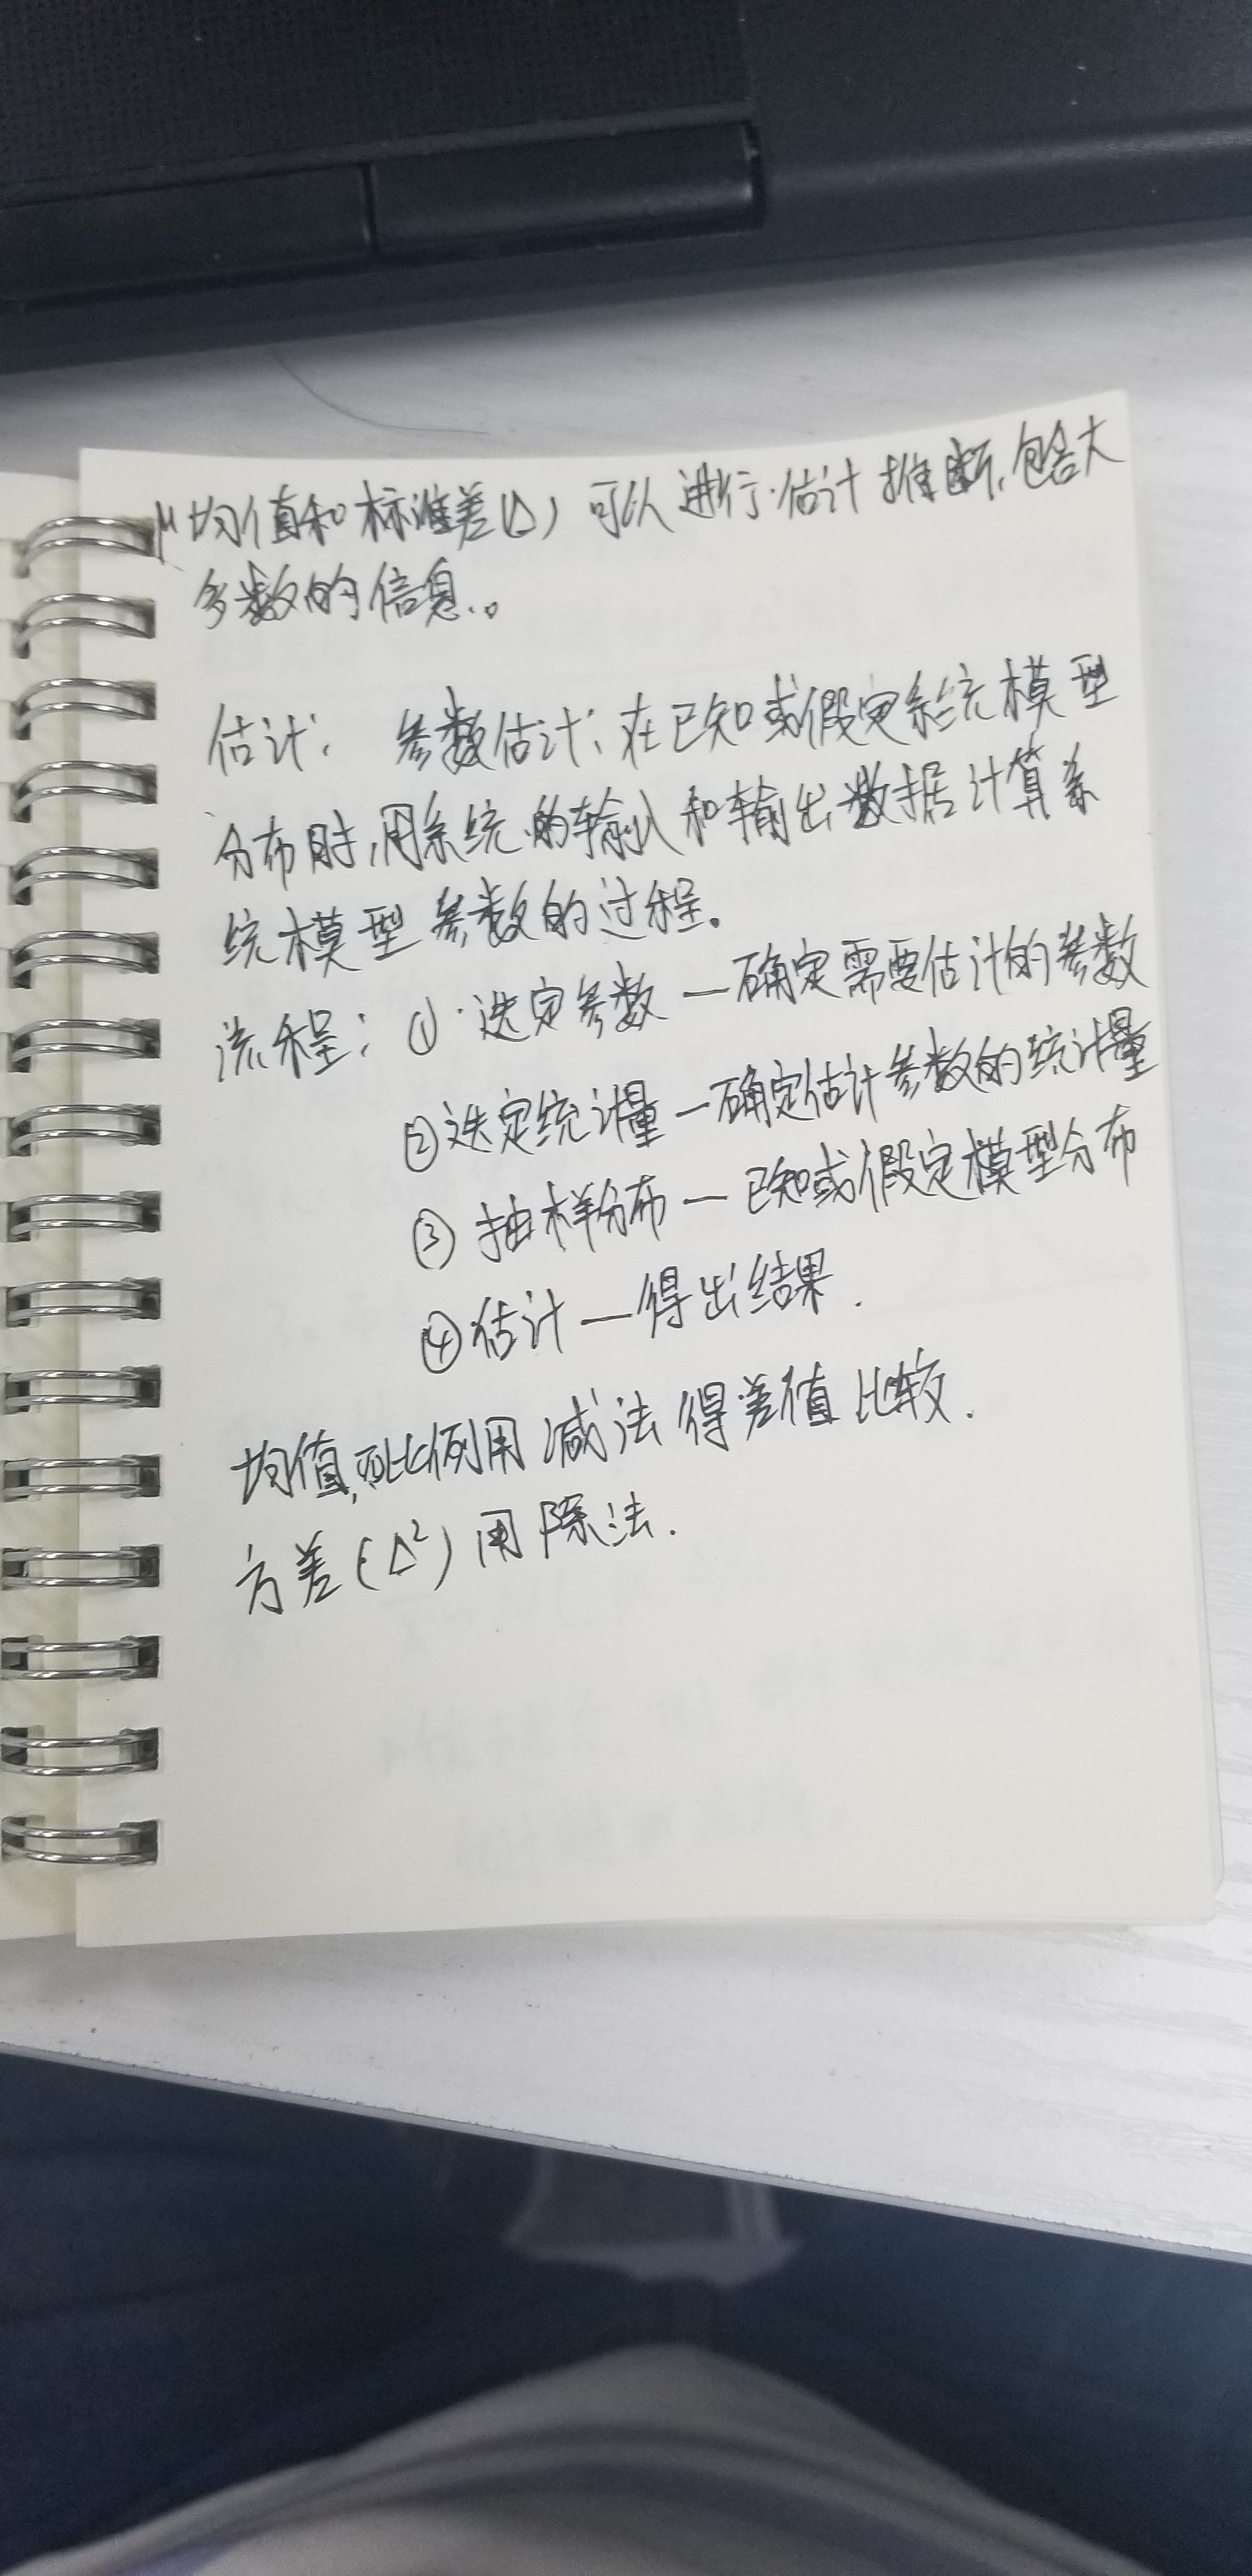 μ均值和标准差(△)可以进行估计推断,包含大
多数的信息。
估计: 参数估计:在已知或假定系统模型
分布时,用系统的输入和输出数据计算系
统模型参数的过程。
流程:① 选定参数 — 确定需要估计的参数
②选定统计量 — 确定估计参数的统计量
③ 抽样分布 — 已知或假定模型分布
④估计 — 得出结果.
均值,比例用减法得差值比较.
方差(△²)用除法.